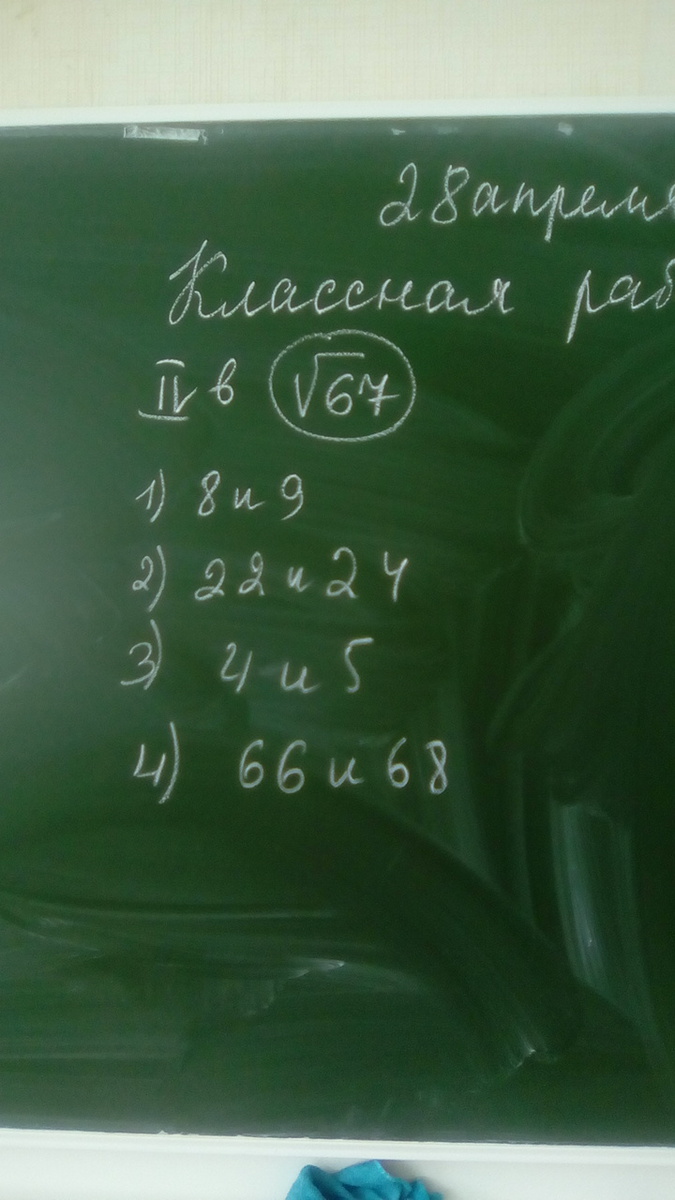 28 апреля
Классная раб
II в √67
1) 8 и 9
2) 22 и 24
3) 4 и 5
4) 66 и 68